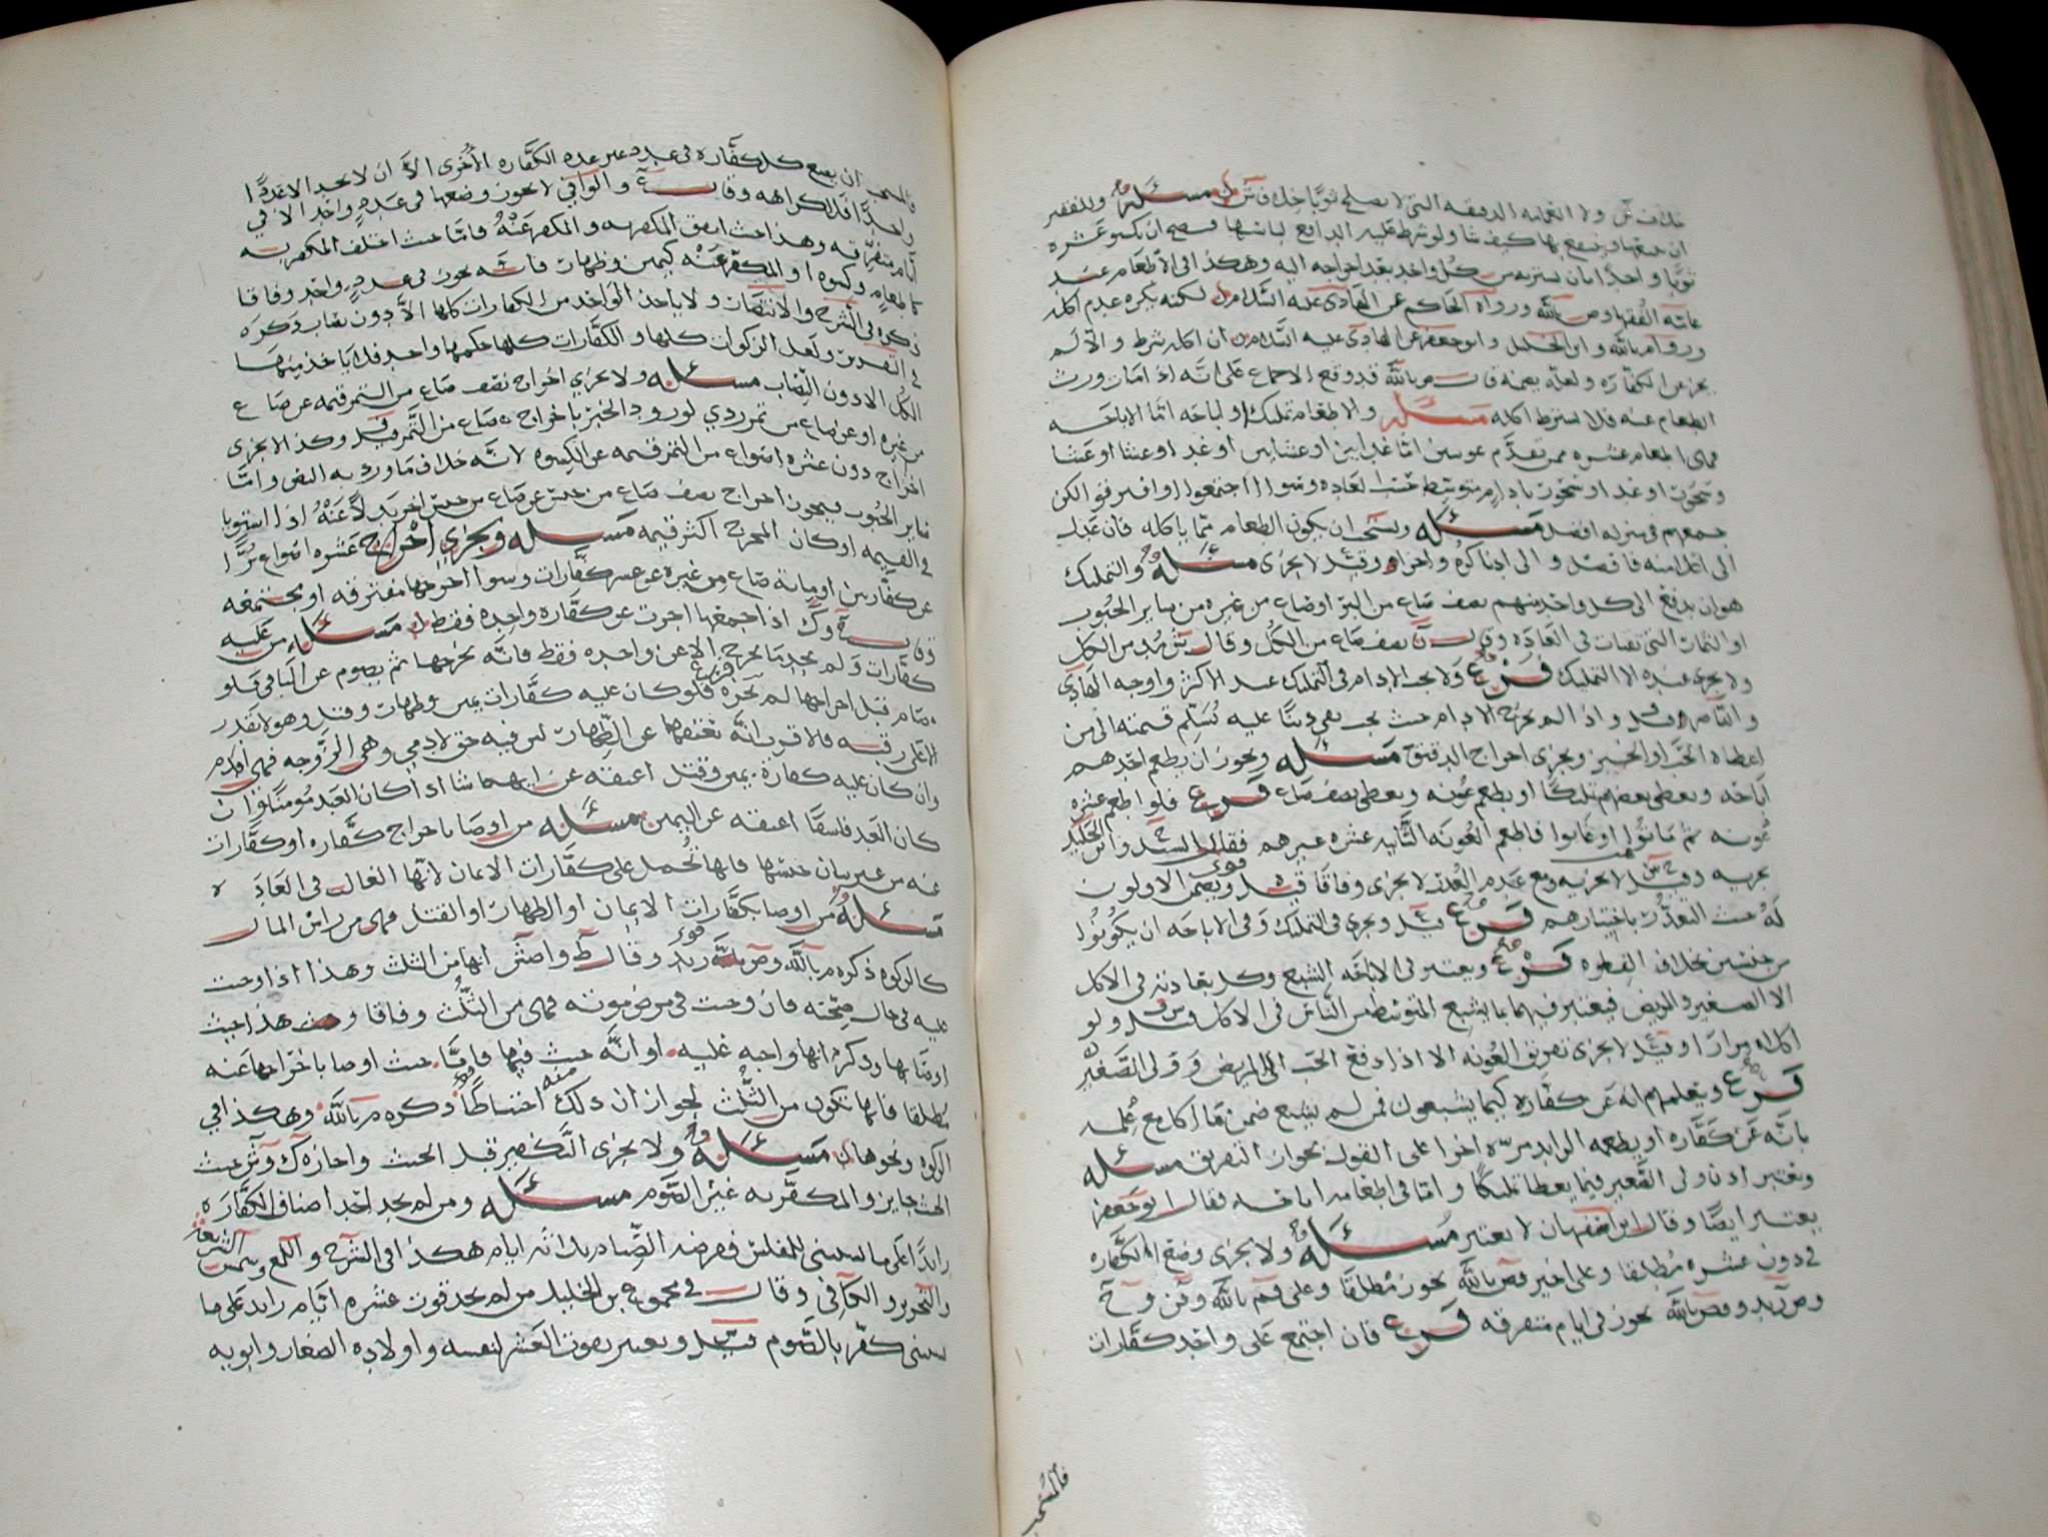 خلاف ش ولا العمامه الدقيقه التي لا تصلح ثوبا خلاف ش مسئله وللفقير
ان يبيعها وينتفع بها كيف شا ولو شرط عليه الدافع لباسها فيصح ان يكسو عشره
ثوبا واحدا بان يشتريه من كل واحد بعد اخراجه اليه وهكذا في الاطعام عند
عامه الفقها وص بالله ورواه الحاكم عن الهادي عليه السلام لكنه يكره عدم اكله
وروا م بالله وابن الخليل وابو جعفر عن الهادي عليه السلام ان اكله شرط والا لم
يجز عن الكفاره ولعله يعنيه قال ص بالله قد وقع الاجماع على انه اذا مات ورث
الطعام عنه فلا يشترط اكله مسئله والاطعام تمليك او اباحه اما الاباحه
فهي اطعام عشره ممن تقدم عونتين اما غداين او عشاين او غدا وعشا او عشا
وسحور او غدا وسحور بادام متوسط العاده وسوا اجتمعوا او افترقوا لكن
جمعهم في منزله افضل مسئله ويستحب ان يكون الطعام مما ياكله فان عدل
الى اعلا منه فافضل والى ادنا كره واجزاه وقيل لا يجزي مسئله والتمليك
هو ان يدفع الى كل واحد منهم نصف صاع من البر او صاع من غيره من سائر الحبوب
او الثمار التي تقتات في العاده وقال نصف صاع من الكل وقال ش مد من الكل
ولا يجزي عنده الا التمليك فرع ولا يجب الادام في التمليك عند الاكثر واوجبه الهادي
والناصر قيل واذا لم يخرج الادام حيث يجب بقي دينا عليه تسلم قيمته الى من
اعطاه الحب او الخبز ويجزي اخراج الدقيق مسئله ويجوز ان يطعم احدهم
اباحه ويعطي بعضهم تمليكا او يطعم عونه ويعطي نصف صاع فرع فلو اطعم عشره
عونه ثم ماتوا او غابوا فاطعم العونه الثانيه عشره غيرهم فقال السيد وابن الخليل
يجزيه وقيل لا يجزيه ومع عدم العذر لا يجزي وفاقا قيل ويضمن الاولون
له حيث التعذر باختيارهم فرع قيل ويجزي في التمليك وفي الاباحه ان يكونوا
من جنسين بخلاف الفطره فرع ويعتبر في الاباحه الشبع وكل بعادته في الاكل
الا الصغير والمريض فيعتبر فيهما بما يشبع المتوسط من الناس في الاكل قيل ولو
اكلاه مرارا وقيل لا يجزي تفريق العونه الا اذا دفع الحب الى المريض وولي الصغير
فرع ويعلمهم انه عن كفاره كيما يشبعون فمن لم يشبع ضمن ما اكل مع علمه
بانه عن كفاره او يطعمه الزايد مره اخرا على القول بجواز التفريق مسئله
ويعتبر اذن ولي الصغير فيما يعطا تمليكا واما في اطعامه اباحه فقال ابو جعفر
يعتبر ايضا وقال ابن اصفهان لا يعتبر مسئله ولا يجزي وضع الكفاره
في دون عشره مطلقا وعلى اخير قص بالله يجوز مطلقا وعلى ق م بالله وق ن وح
وص زيد وقص بالله يجوز في ايام متفرقه فرع فان اجتمع على واحد كفارات
فالمستحب
فالمستحب ان يضع كل كفاره في عدد غير عدد الكفاره الاخرى الا ان لا يجد الا عددا
واحدا فلا كراهه وقال والوافي لا يجوز وضعها في عدد واحد الا في
ايام متفرقه وهذا حيث اتفق المكفر به والمكفر عنه فاما حيث اختلف المكفر به
كاطعام وكسوه او المكفر عنه كيمين وظهار فانه يجوز في عدد واحد وفاقا
ذكره في الشرح والانتصار ولا ياخذ الواحد من الكفارات كلها الا دون نصاب ذكره
في التقرير ولعل الزكوات كلها والكفارات كلها حكمها واحد فلا ياخذ منها
الكل الا دون النصاب مسئله ولا يجزي اخراج نصف صاع من التمر قيمه عن صاع
من غيره او عن صاع من تمر ردي لورود الخبر باخراج صاع من التمر قيل وكذا لا يجزي
اخراج دون عشره اصواع من التمر قيمه عن الكسوه لانه خلاف ما ورد به النص واما
سائر الحبوب فيجوز اخراج نصف صاع من جنس عن صاع من جنس اخر بدلا عنه اذا استويا
في القيمه او كان المخرج اكثر قيمه مسئله ويجزي اخراج عشره اصواع برا
عن كفارتين او مائة صاع من غيره عن عشر كفارات وسوا اخرجها مفترقه او مجتمعه
وقال وك اذا اجمعها اجزت عن كفاره واحده فقط مسئله من عليه
كفارات ولم يجد ما يخرج الا عن واحده فقط فانه يخرجها ثم يصوم عن الباقي فلو
صام قبل اخراجها لم يجزه فرع فلو كان عليه كفارات يمين وظهار وقتل وهو لا يقدر
الا على رقبه فالاقرب انه يعتقها عن الظهار لان فيه حق لادمي وهي الزوجه فهي اقدم
وان كان عليه كفارة يمين وقتل اعتقه عن ايهما شا اذا كان العبد مومنا وان
كان العبد فاسقا اعتقه عن اليمين مسئله من اوصا باخراج كفاره او كفارات
عنه من غير بيان جنسها فانها تحمل على كفارات الايمان لانها الغالب في العاده
مسئله من اوصا بكفارات الايمان او الظهار او القتل فهي من راس المال
كالزكوه ذكره م بالله وص بالله وزيد وقال ط واص ش انها من الثلث وهذا اذا وجبت
عليه في حال صحته فان وجبت في مرض موته فهي من الثلث وفاقا وهذا حيث
اوصا بها وذكر انها واجبه عليه او انه حنث فيها فاما حيث اوصا باخراجها عنه
مطلقا فانها تكون من الثلث لجواز ان ذلك منه احتياطا ذكره م بالله وهكذا في
الزكوه ونحوها مسئله ولا يجزي التكفير قبل الحنث واجازه ك وش حيث
الحنث جايز والمكفر به غير الصوم مسئله ومن لم يجد احد اصناف الكفاره
زايدا على ما يستثنى للمفلس ففرضه الصيام ثلاثه ايام هكذا في الشرح واللمع وشمس الشريعه
والتحرير والكافي وقال في مجموع بن الخليل من لم يجد قوت عشره ايام زايد على ما
يستثنى كفر بالصوم قيل ويعتبر بقوت العشر لنفسه واولاده الصغار وابويه